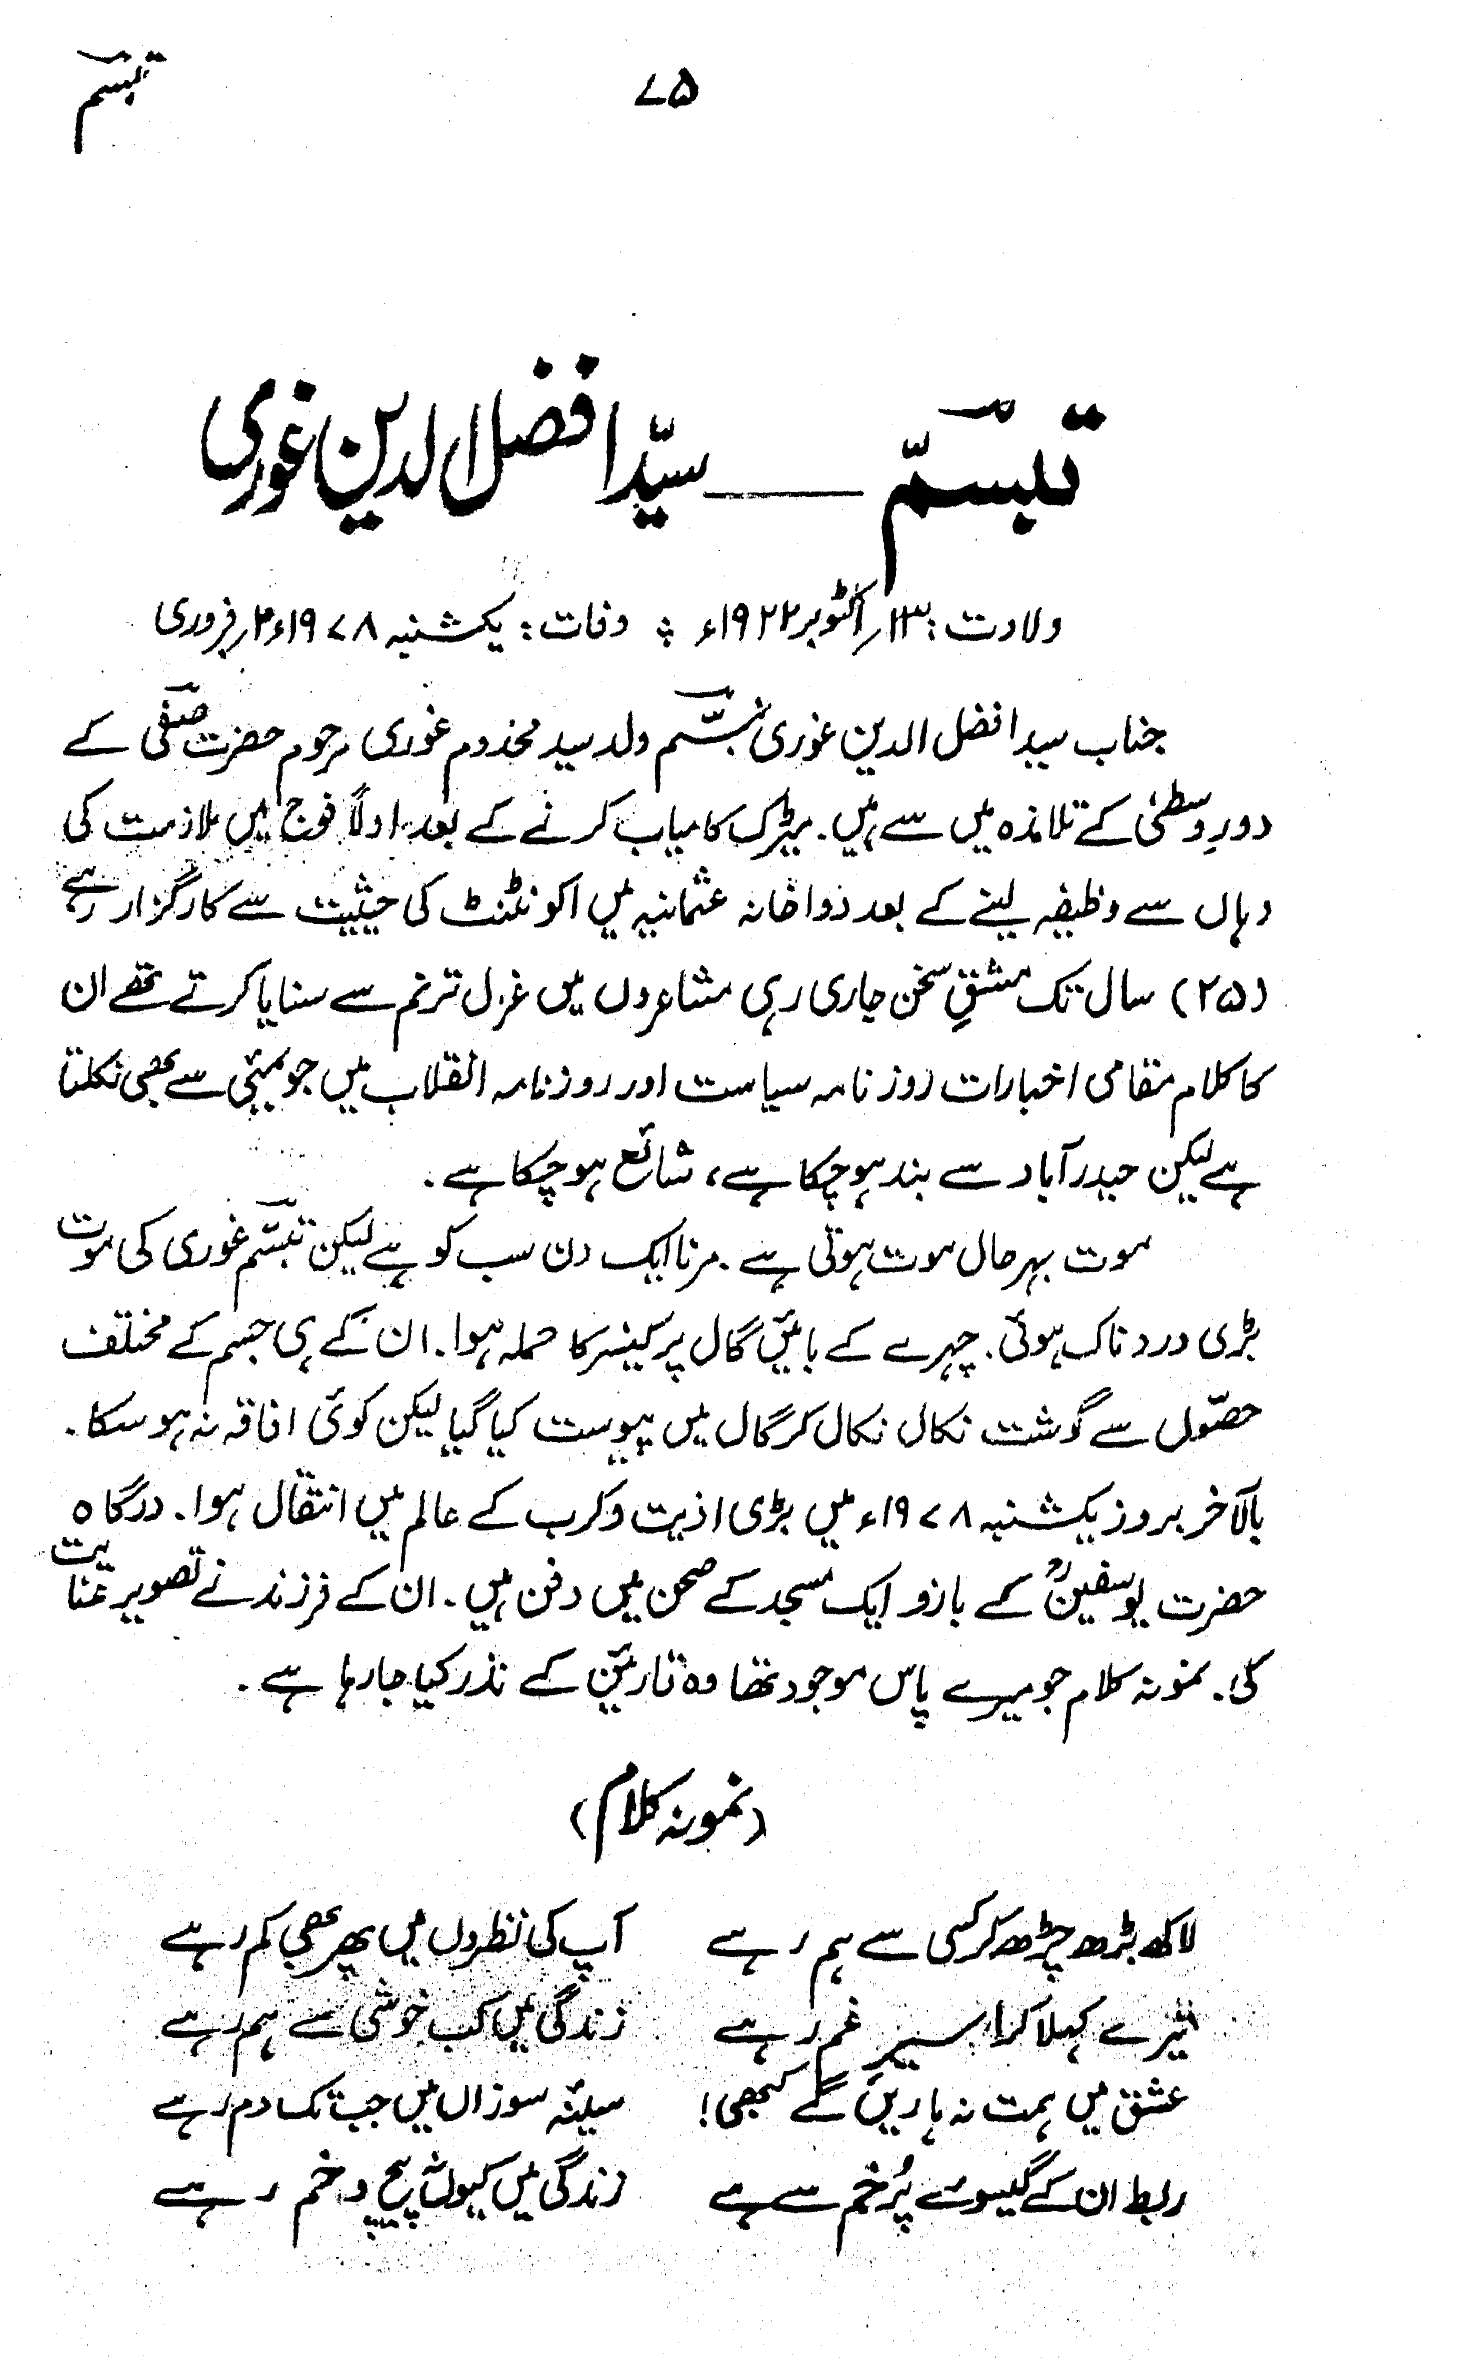 تبسم
۷۵
تبسّم ــــــ سیّد افضل الدین غوری
ولادت : ۱۳؍ اکٹوبر ۱۹۲۲ء ؞ وفات : یکشنبہ ۱۹۷۸ء ۲؍ فروری
جناب سید افضل الدین غوری تبسّم ولد سید مخدوم غوری مرحوم حضرت صفی کے
دورِ وسطیٰ کے تلامذہ میں سے ہیں۔ میٹرک کامیاب کرنے کے بعد اولاً فوج میں ملازمت کی
وہاں سے وظیفہ لینے کے بعد دواخانہ عثمانیہ میں اکونٹنٹ کی حیثیت سے کارگزار رہے
(۲۵) سال تک مشقِ سخن جاری رہی مشاعروں میں غزل ترنم سے سنایا کرتے تھے ان
کا کلام مقامی اخبارات روزنامہ سیاست اور روزنامہ انقلاب میں جو بمبئی سے بھی نکلتا
ہے لیکن حیدرآباد سے بند ہو چکا ہے، شائع ہو چکا ہے۔
موت بہرحال موت ہوتی ہے۔ مرنا ایک دن سب کو ہے لیکن تبسّم غوری کی موت
بڑی دردناک ہوئی۔ چہرے کے بائیں گال پر کینسر کا حملہ ہوا۔ ان کے ہی جسم کے مختلف
حصّوں سے گوشت نکال نکال کر گال میں پیوست کیا گیا لیکن کوئی افاقہ نہ ہو سکا۔
بالآخر بروز یکشنبہ ۱۹۷۸ء میں بڑی اذیت و کرب کے عالم میں انتقال ہوا۔ درگاہ
حضرت یوسفینؒ کے بازو ایک مسجد کے صحن میں دفن ہیں۔ ان کے فرزند نے تصویر عنایت
کی۔ نمونہ کلام جو میرے پاس موجود تھا وہ قارئین کے نذر کیا جا رہا ہے۔
(نمونہ کلام)
لاکھ بڑھ چڑھ کر کسی سے ہم رہے آپ کی نظروں میں پھر بھی کم رہے
تیرے کہلا کر اسیرِ غم رہے زندگی میں کب خوشی سے ہم رہے
عشق میں ہمت نہ ہاریں گے کبھی! سینۂ سوزاں میں جب تک دم رہے
ربط ان کے گیسوئے پُرخم سے ہے زندگی میں کیوں نہ پیچ و خم رہے